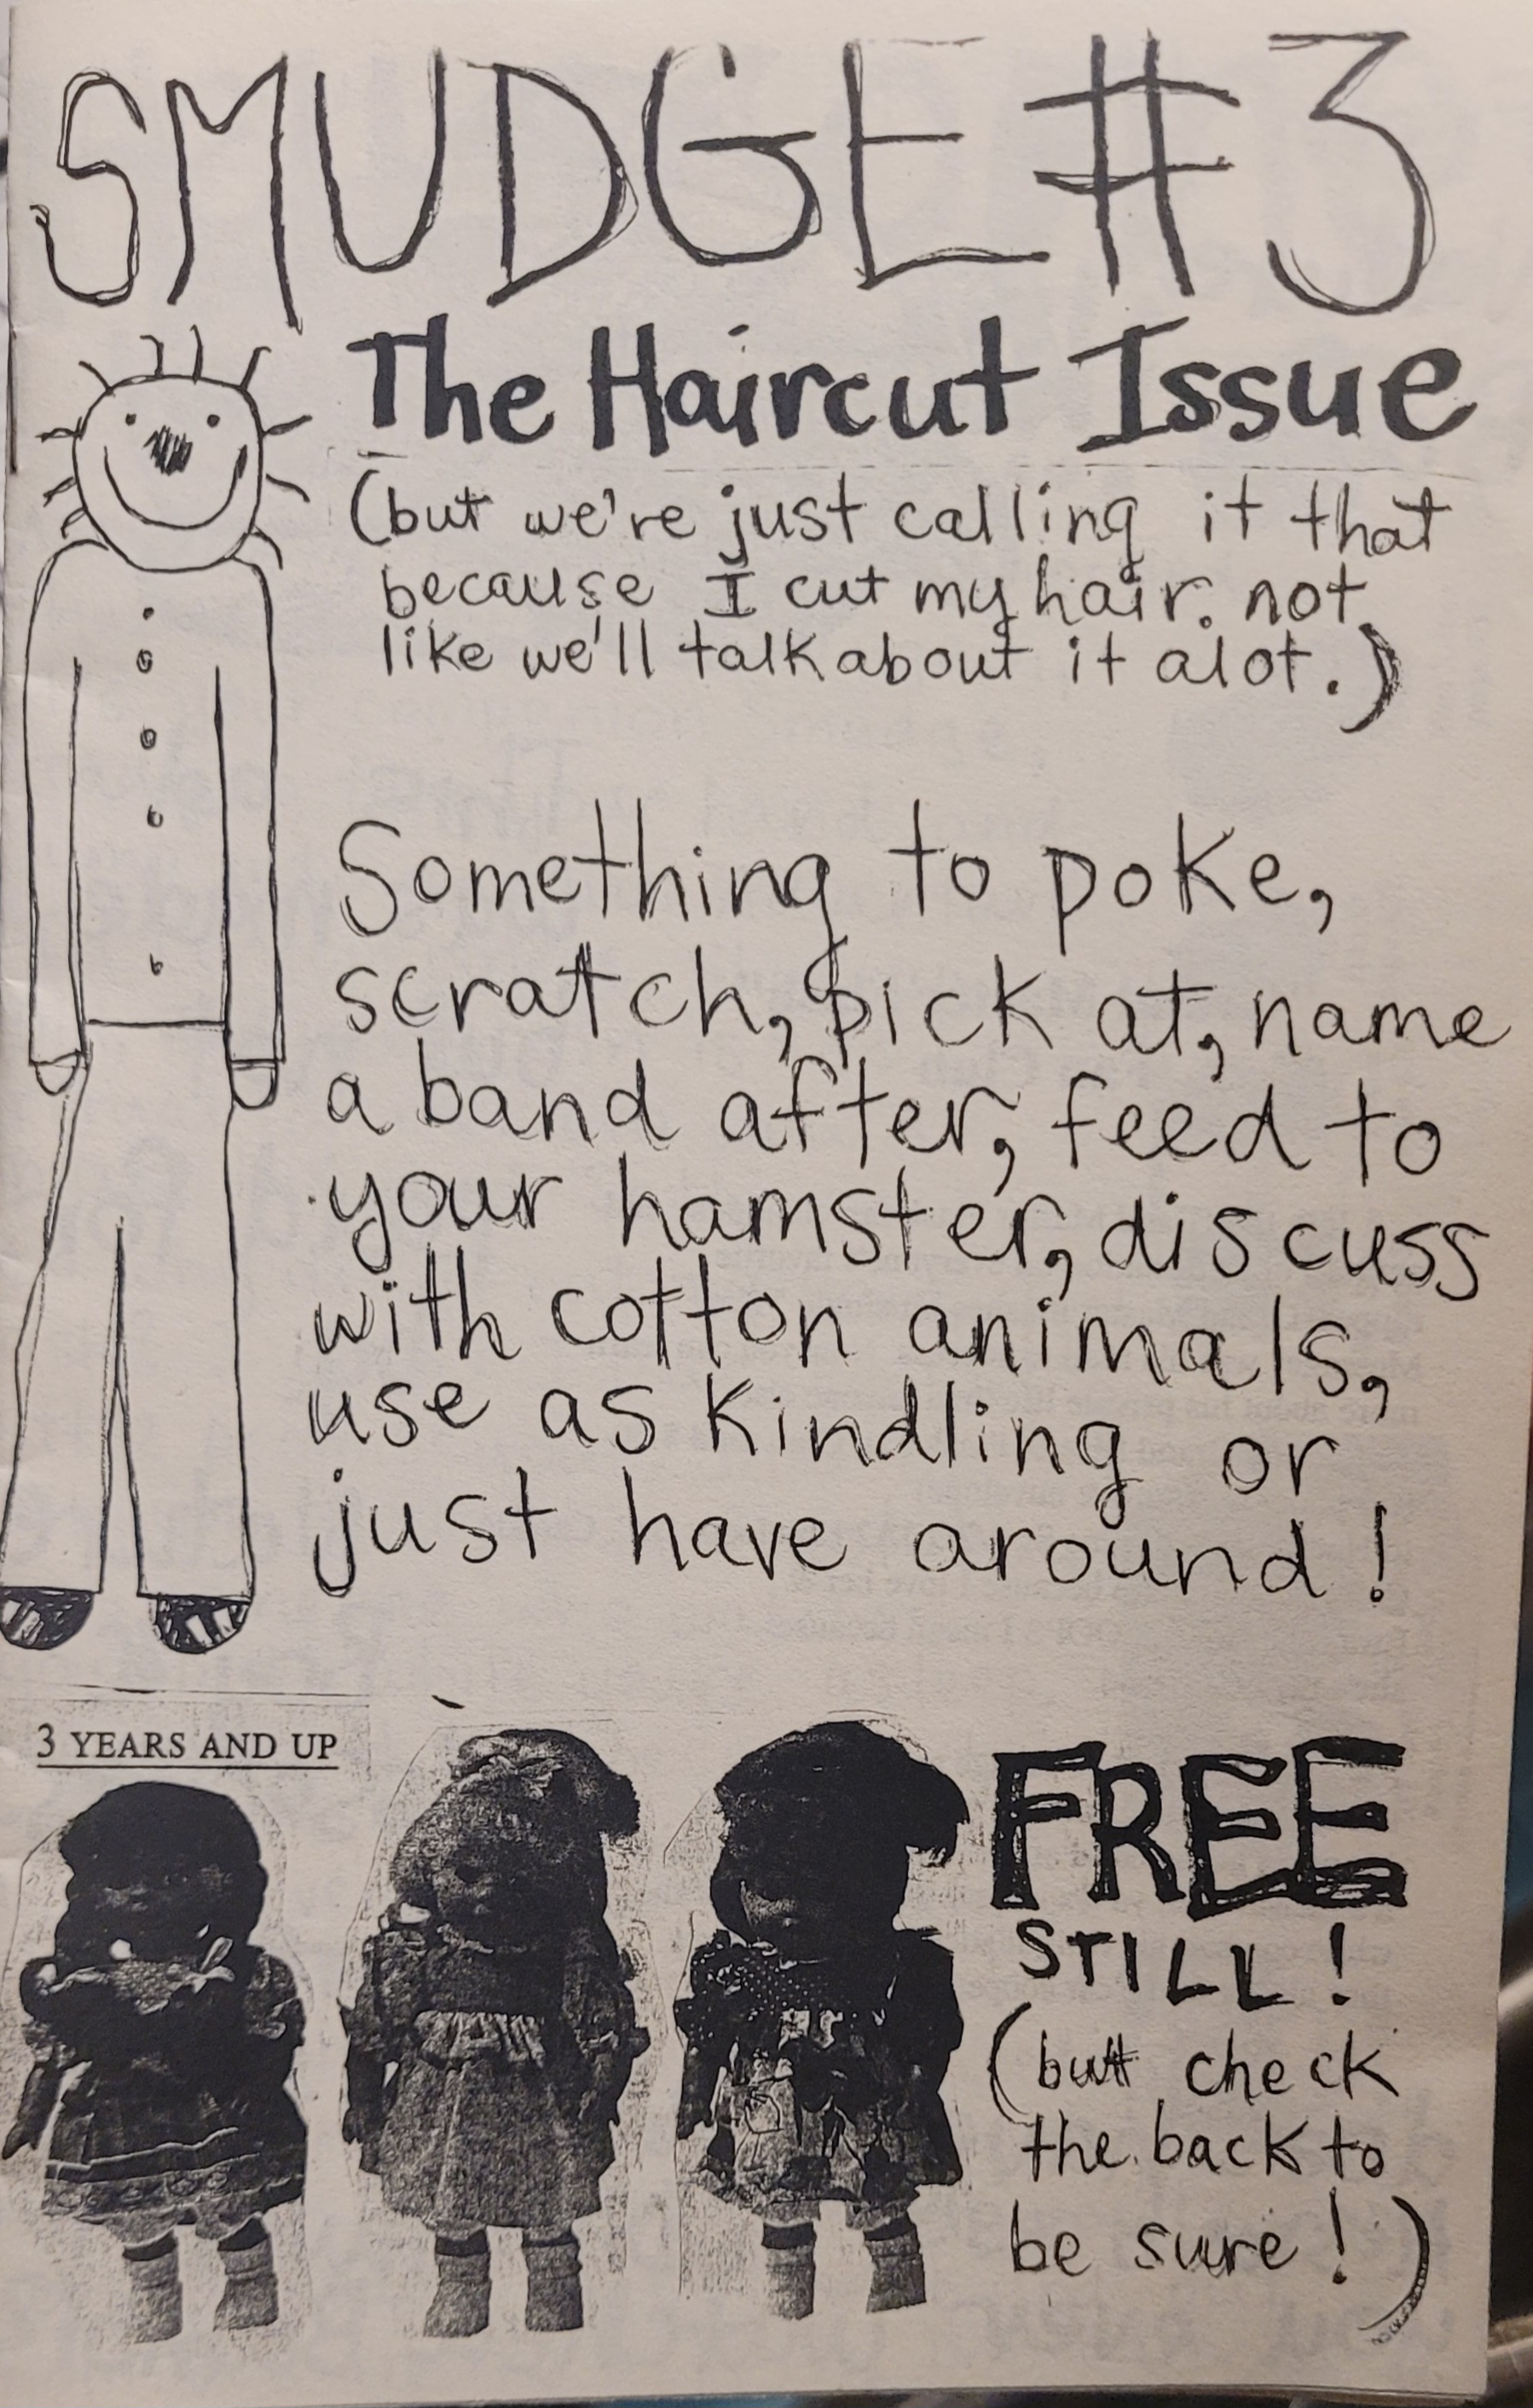 SMUDGE #3
The Haircut Issue
(but we're just calling it that
because I cut my hair. not
like we'll talk about it alot.)
Something to poke,
scratch, pick at, name
a band after, feed to
your hamster, discuss
with cotton animals,
use as kindling or
just have around!
3 YEARS AND UP
FREE
STILL!
(but check
the back to
be sure!)